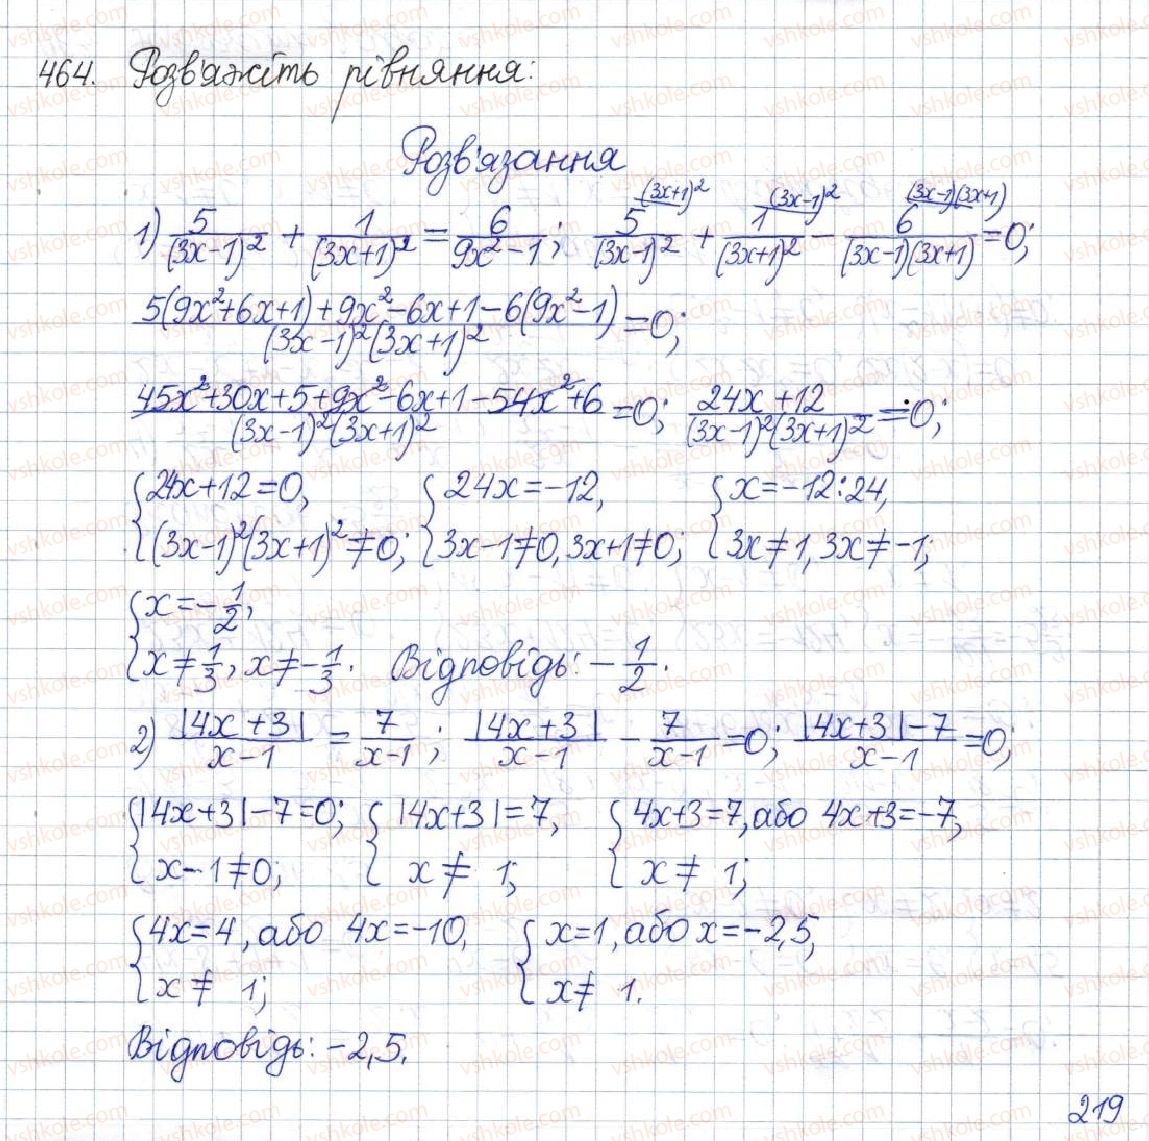 464. Розв'яжіть рівняння:
Розв'язання
1) 5/(3x-1)² + 1/(3x+1)² = 6/(9x²-1); 5^(3x+1)²/(3x-1)² + 1^(3x-1)²/(3x+1)² - 6^(3x-1)(3x+1)/((3x-1)(3x+1)) = 0;
(5(9x²+6x+1)+9x²-6x+1-6(9x²-1))/((3x-1)²(3x+1)²) = 0;
(45x²+30x+5+9x²-6x+1-54x²+6)/((3x-1)²(3x+1)²) = 0; (24x+12)/((3x-1)²(3x+1)²) = 0;
{24x+12=0, {24x=-12, {x=-12:24,
(3x-1)²(3x+1)²≠0; 3x-1≠0, 3x+1≠0; 3x≠1, 3x≠-1;
{x=-1/2,
x≠1/3, x≠-1/3. Відповідь: -1/2.
2) |4x+3|/(x-1) = 7/(x-1); |4x+3|/(x-1) - 7/(x-1) = 0; (|4x+3|-7)/(x-1) = 0;
{|4x+3|-7=0; {|4x+3|=7, {4x+3=7, або 4x+3=-7,
x-1≠0; x≠1; x≠1;
{4x=4, або 4x=-10, {x=1, або x=-2,5,
x≠1; x≠1.
Відповідь: -2,5.
219
vshkole.com